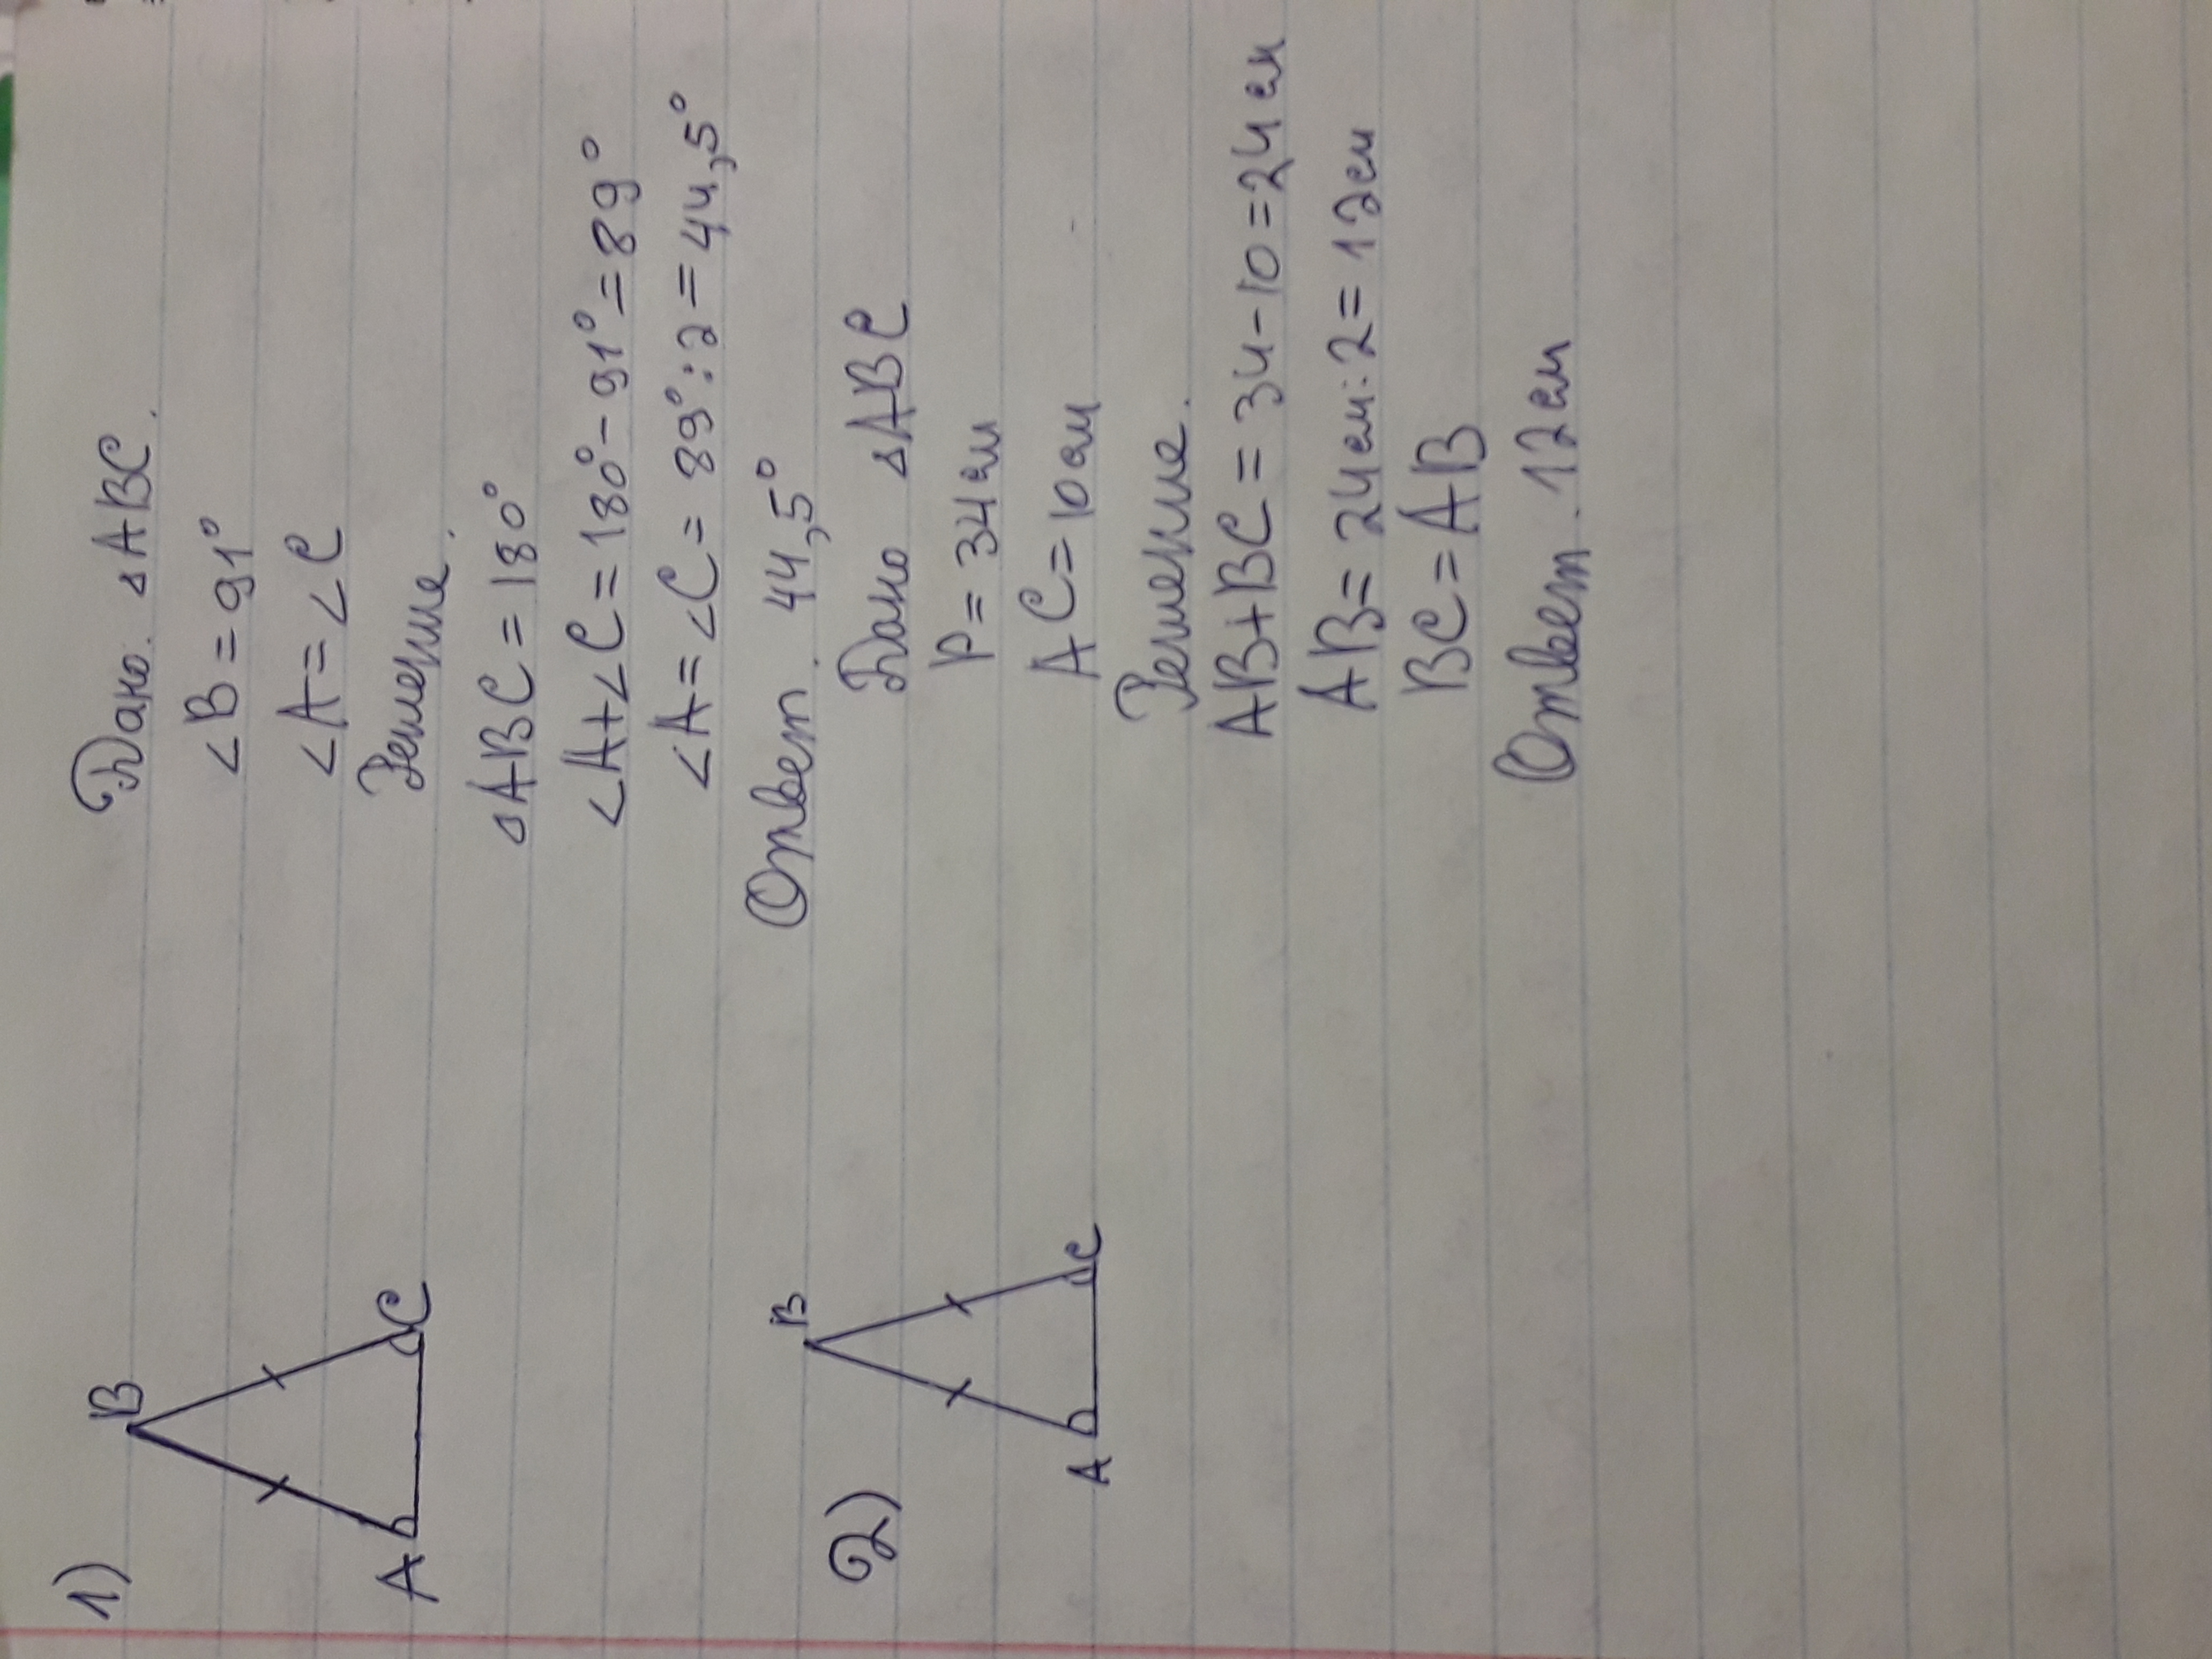 1)
B
A
C
Дано. ΔABC.
∠B = 91°
∠A = ∠C
Решение.
ΔABC = 180°
∠A+∠C = 180° - 91° = 89°
∠A = ∠C = 89° : 2 = 44,5°
Ответ. 44,5°
2)
B
A
C
Дано ΔABC
P = 34см
AC = 10см
Решение.
AB+BC = 34-10 = 24см
AB = 24см:2 = 12см
BC = AB
Ответ. 12см